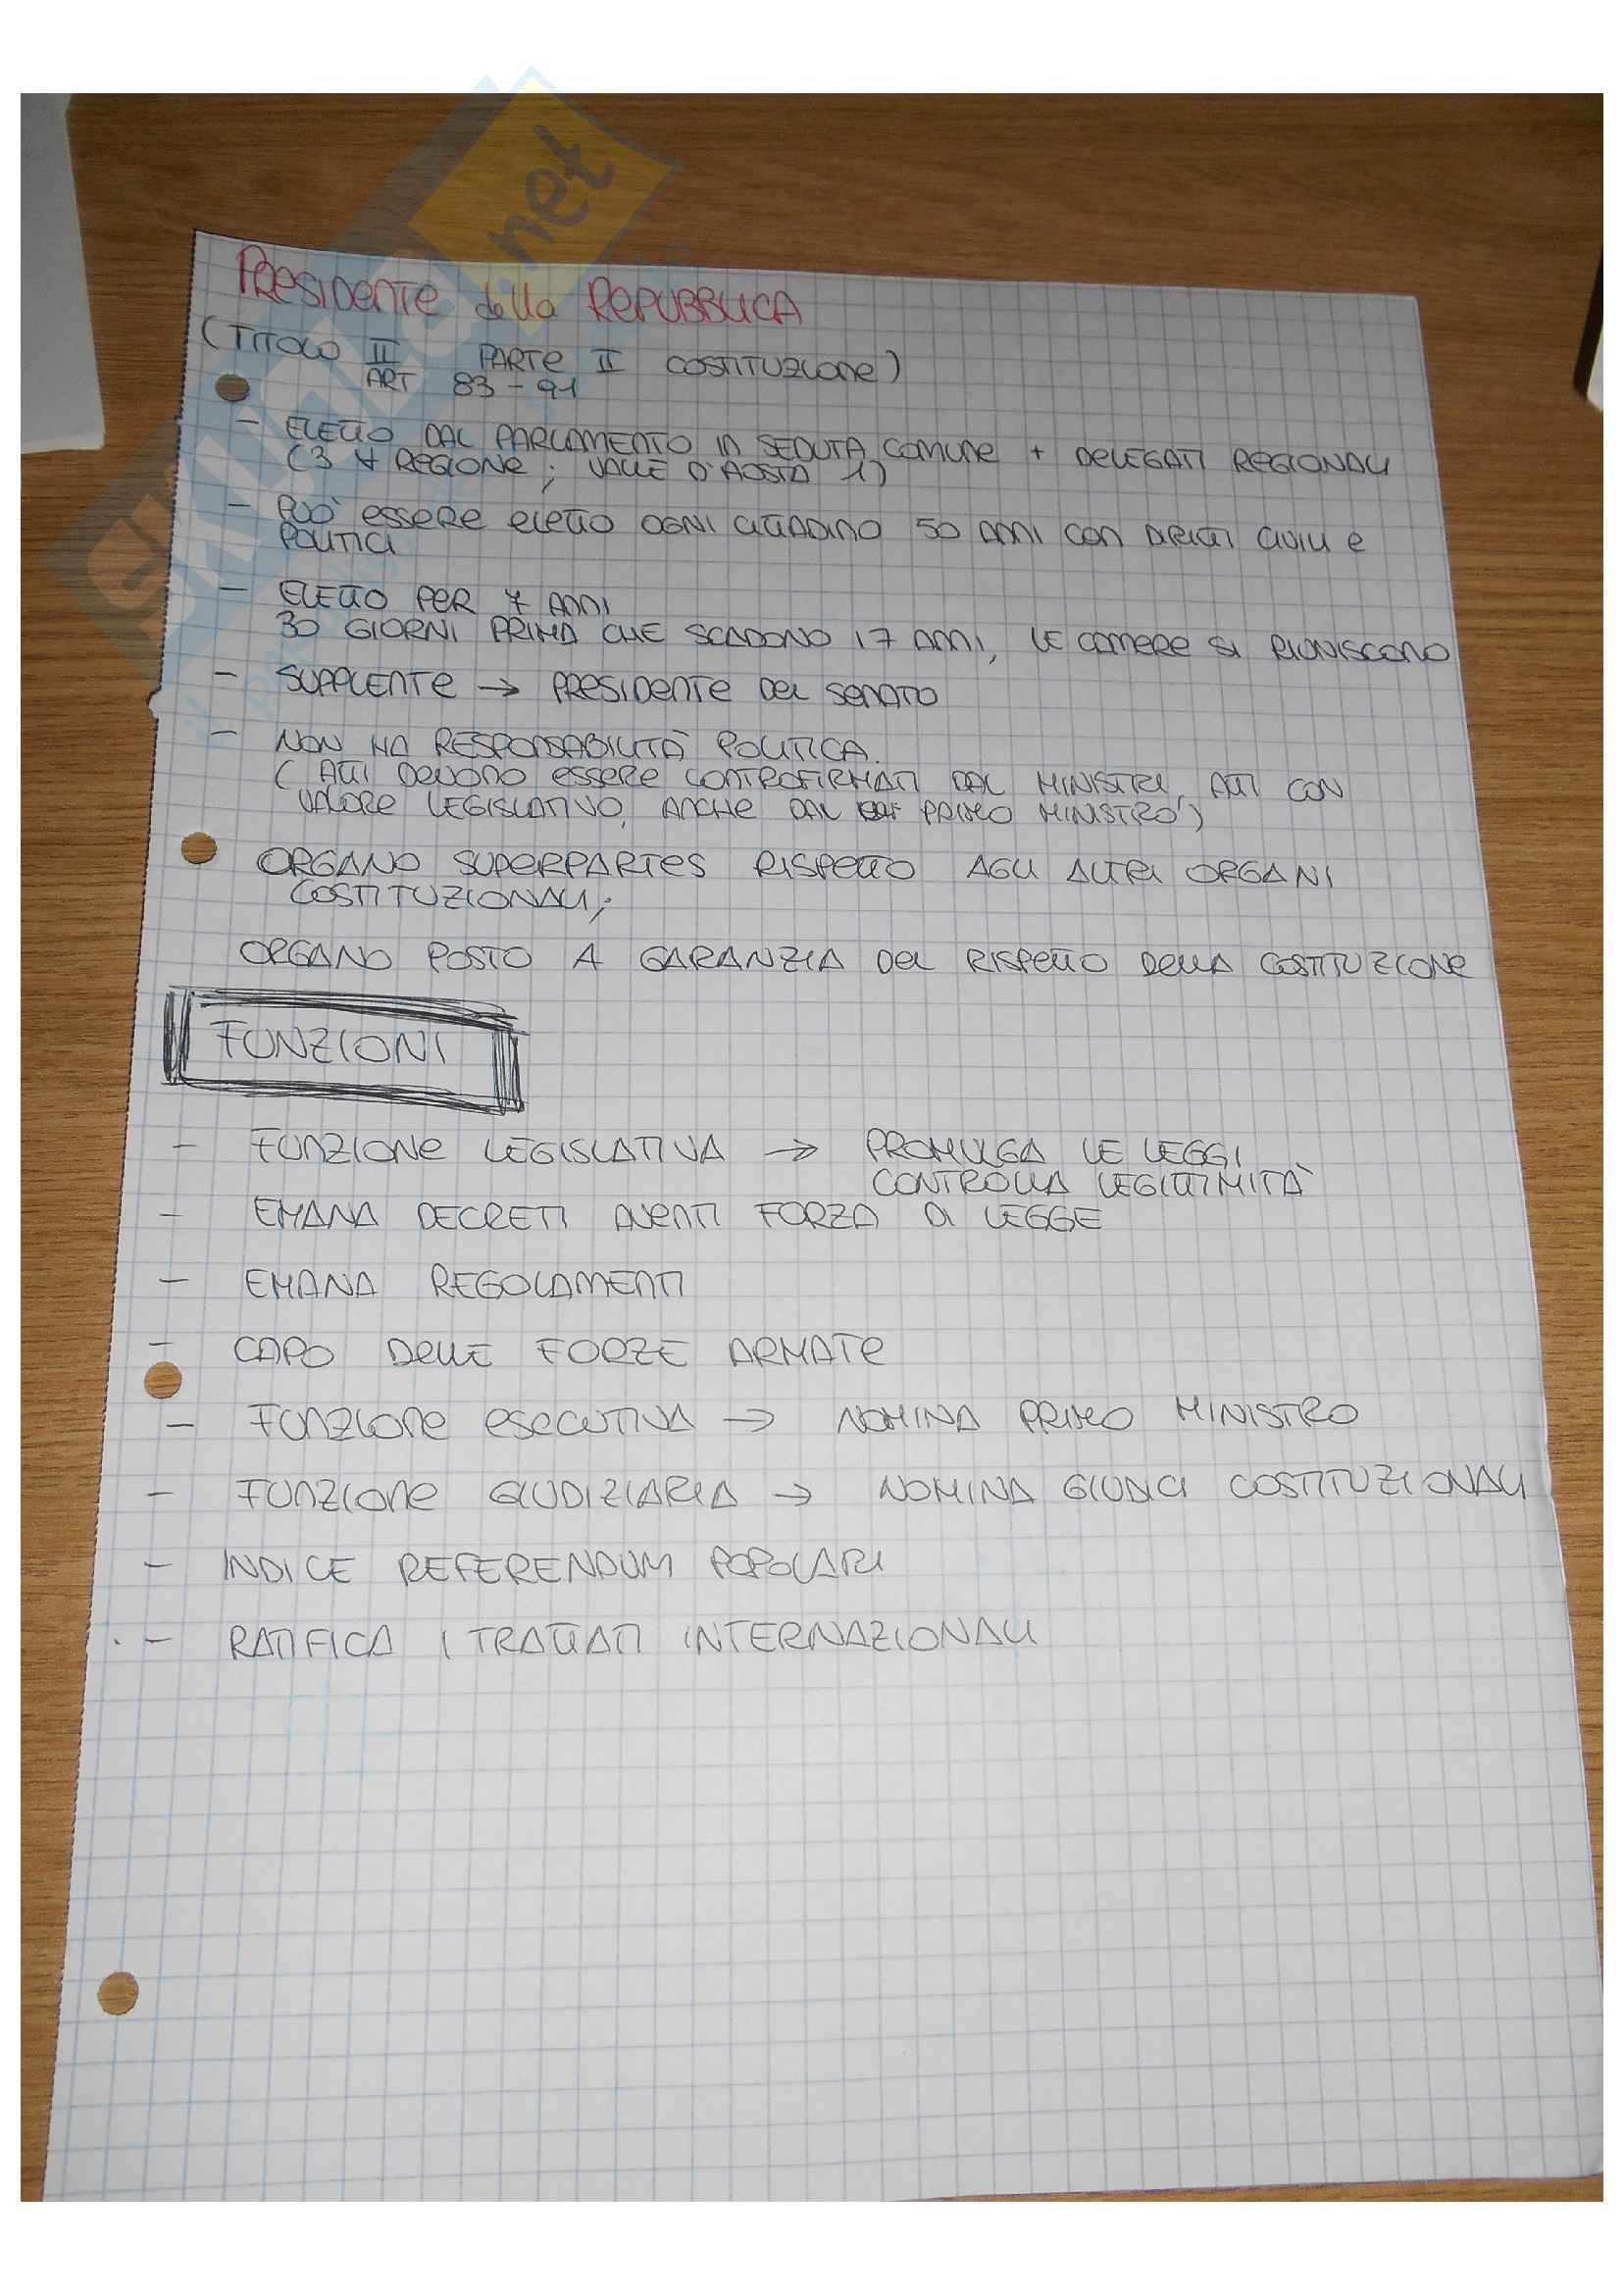 PRESIDENTE della REPUBBLICA
(TITOLO II PARTE II COSTITUZIONE)
ART 83-91
- ELETTO DAL PARLAMENTO IN SEDUTA COMUNE + DELEGATI REGIONALI
(3 ∀ REGIONE; VALLE D'AOSTA 1)
- PUÒ ESSERE ELETTO OGNI CITTADINO 50 ANNI CON DIRITTI CIVILI E
POLITICI
- ELETTO PER 7 ANNI
30 GIORNI PRIMA CHE SCADONO I 7 ANNI, LE CAMERE SI RIUNISCONO
- SUPPLENTE → PRESIDENTE DEL SENATO
- NON HA RESPONSABILITÀ POLITICA.
(ATTI DEVONO ESSERE CONTROFIRMATI DAL MINISTRI, ATTI CON
VALORE LEGISLATIVO, ANCHE DAL PRIMO MINISTRO)
ORGANO SUPERPARTES RISPETTO AGLI ALTRI ORGANI
COSTITUZIONALI;
ORGANO POSTO A GARANZIA DEL RISPETTO DELLA COSTITUZIONE
FUNZIONI
- FUNZIONE LEGISLATIVA → PROMULGA LE LEGGI
CONTROLLA LEGITTIMITÀ
- EMANA DECRETI AVENTI FORZA DI LEGGE
- EMANA REGOLAMENTI
- CAPO DELLE FORZE ARMATE
- FUNZIONE ESECUTIVA → NOMINA PRIMO MINISTRO
- FUNZIONE GIUDIZIARIA → NOMINA GIUDICI COSTITUZIONALI
- INDICE REFERENDUM POPOLARI
- RATIFICA I TRATTATI INTERNAZIONALI